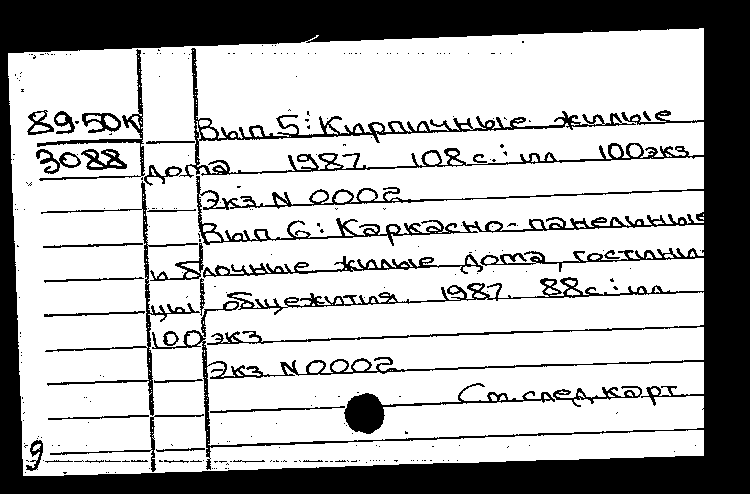 89-50к
3088
Вып.5: Кирпичные жилые
дома. 1987. 108 с.: ил 100экз
Экз. N 0002
Вып. 6: Каркасно-панельные
и блочные жилые дома, гостини-
цы, общежития. 1987. 88с.: ил
100 экз
Экз. N0002
См. след. карт.
9